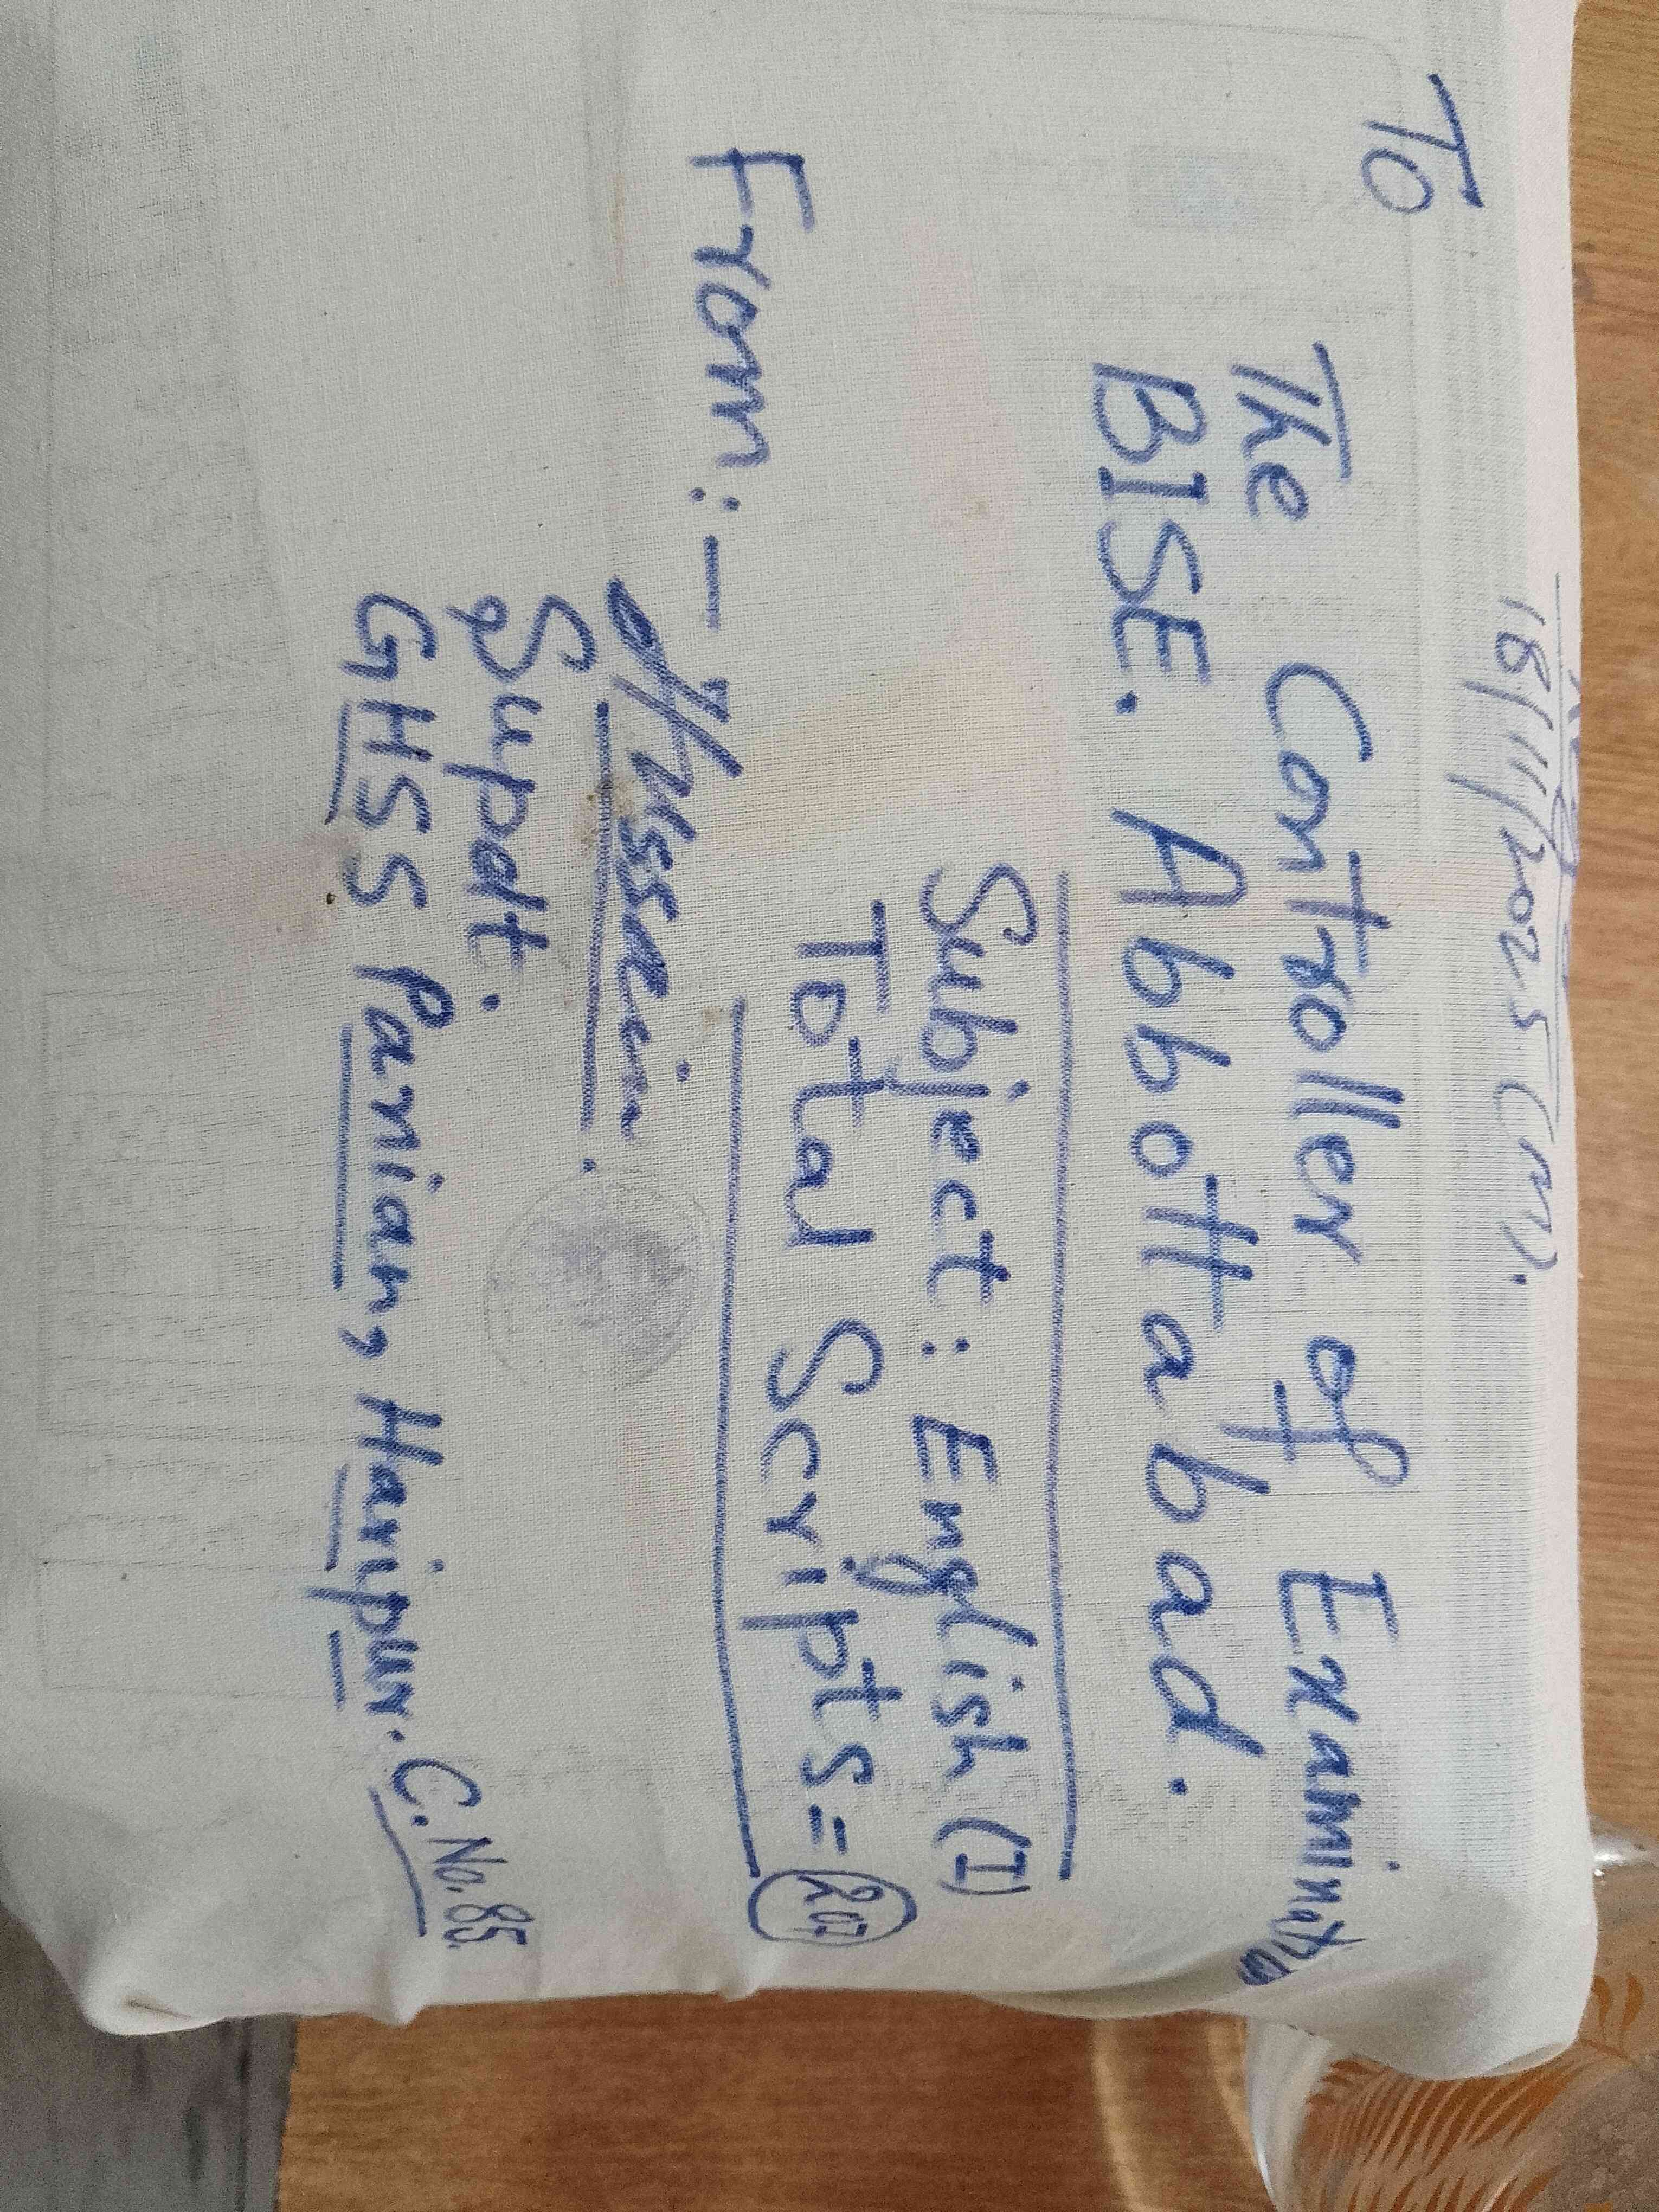 18/11/2025 (M).
To
The Controller of Examination
BISE. Abbottabad.
Subject: English (I)
Total Scripts = 207
From:-
Supdt.
GHSS Panian, Haripur. C. No. 85.